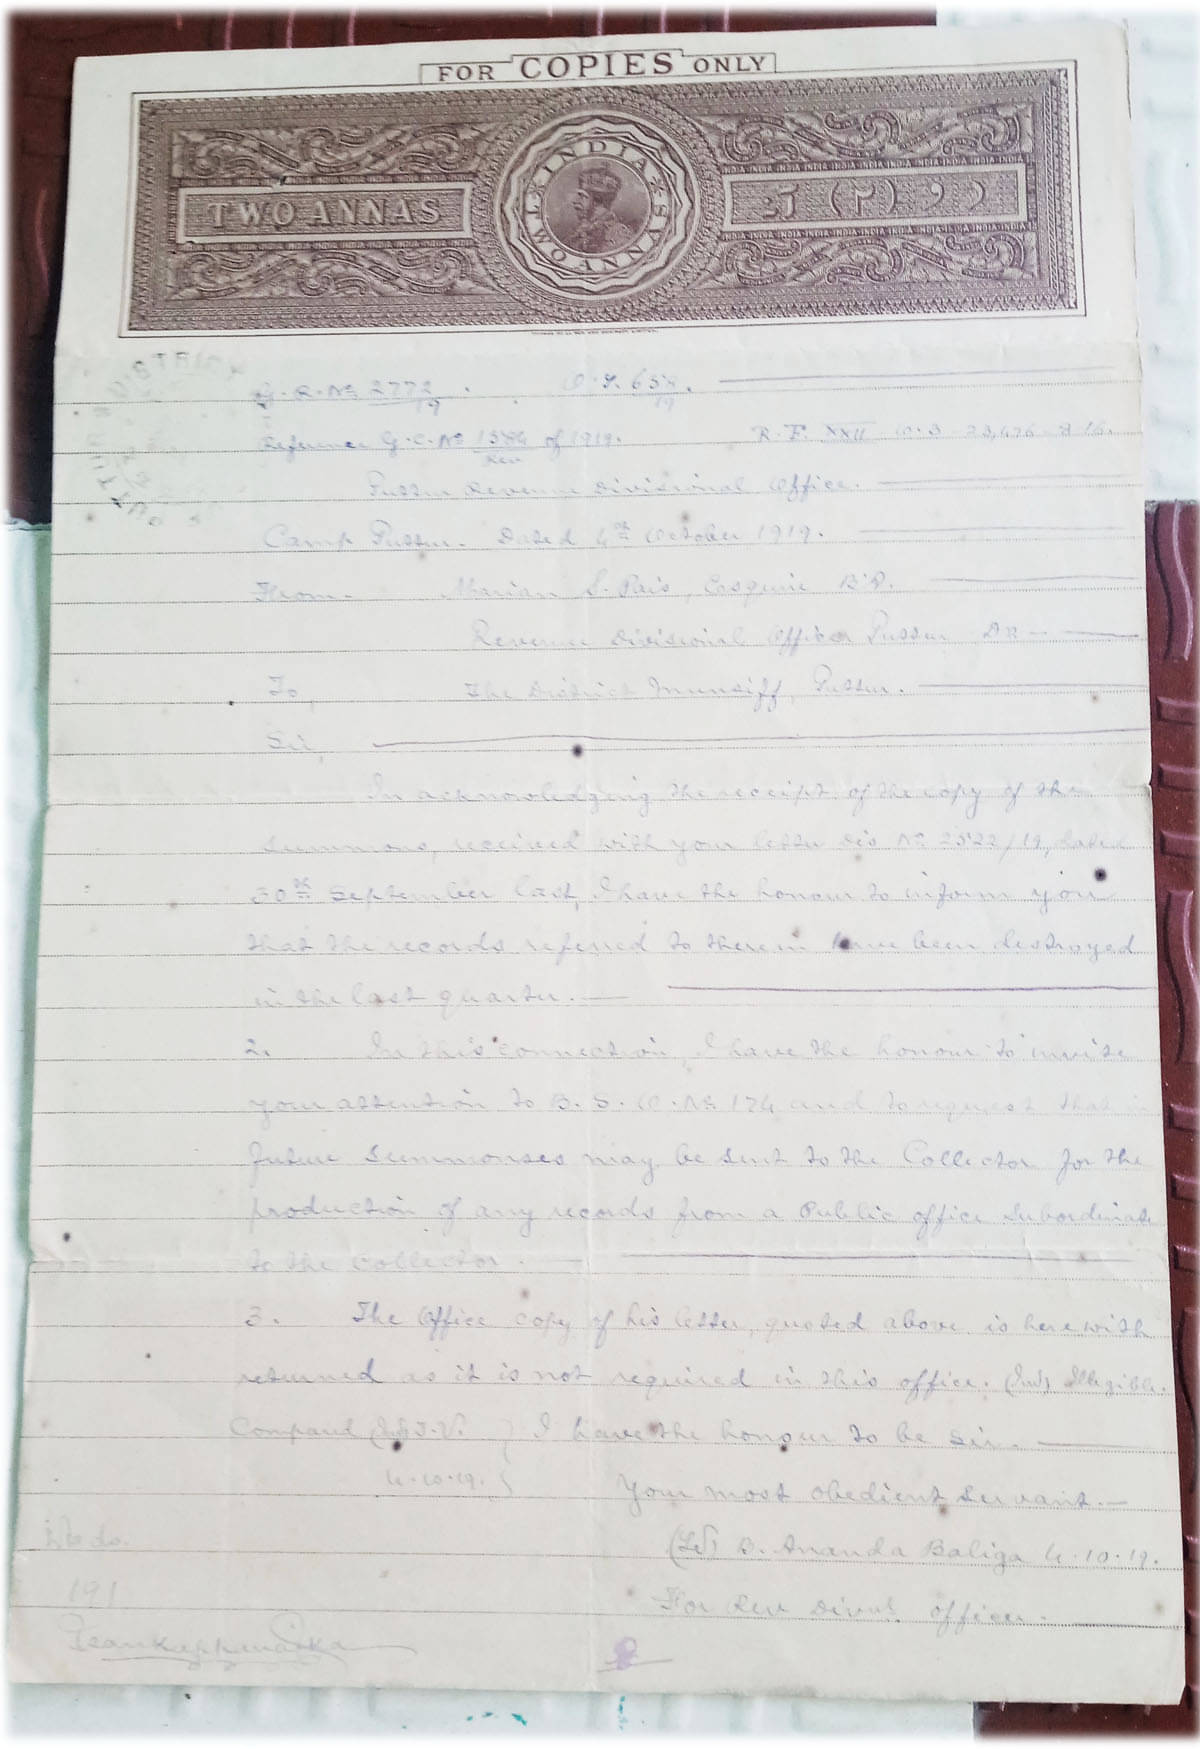 FOR COPIES ONLY
INDIA
TWO ANNAS
TWO ANNAS
DISTRICT
G. R. No 2772/19. O. S. 654/19.
Reference G. C. No 1584/Rev of 1919. R. F. XXII
Puttur Revenue Divisional Office.
Camp Puttur. Dated 4th October 1919.
From. Marian S. Pais, Esquire B.A.
Revenue Divisional Officer Puttur
To The District Munsiff, Puttur.
Sir,
In acknowledging the receipt of the copy of the
summons, received with your letter Dis No 2522/19, dated
30th September last, I have the honour to inform you
that the records referred to therein have been destroyed
in the last quarter.
2. In this connection, I have the honour to invite
your attention to B. S. O. No 174 and to request that in
future summonses may be sent to the Collector for the
production of any records from a Public office Subordinate
to the Collector.
3. The Office copy of his letter, quoted above is herewith
returned as it is not required in this office. (Ind) Illegible.
I have the honour to be Sir.
4.10.19.
Your most obedient servant.
(Sd) B. Ananda Baliga 4.10.19.
For Rev Divnl. officer.
191